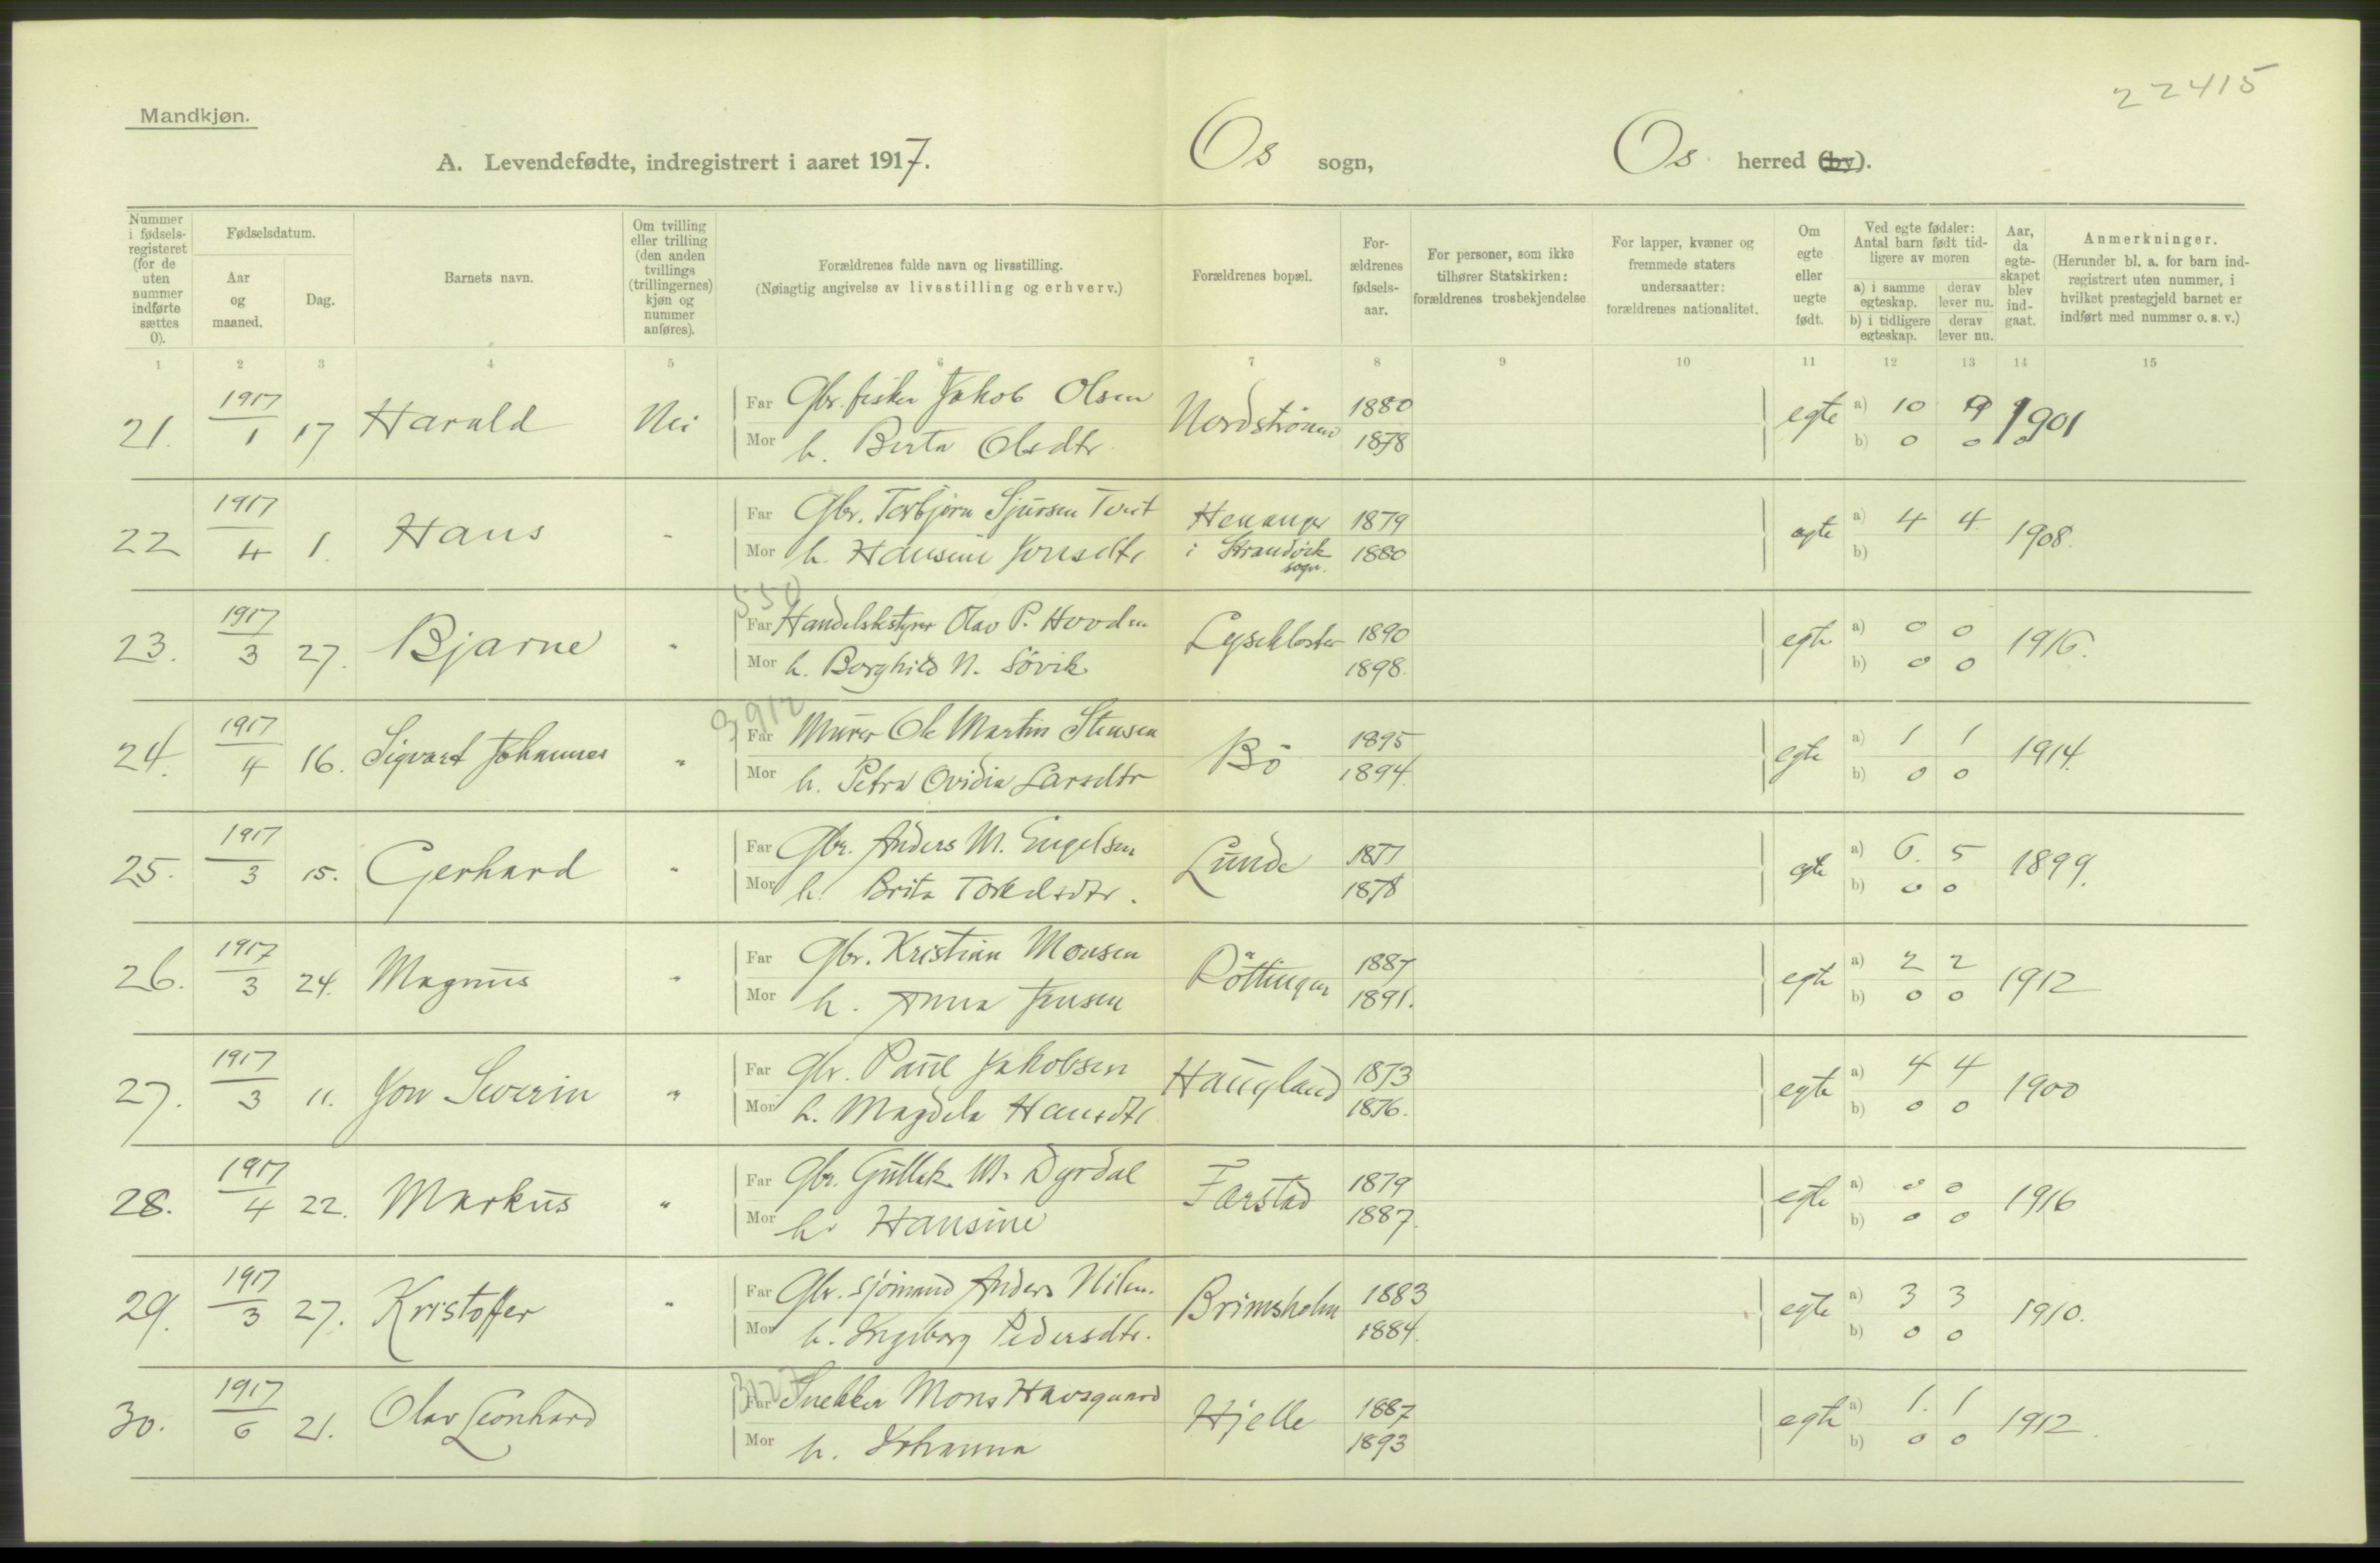 22415
Mandkjøn.
A. Levendefødte, indregistrert i aaret 1917. Os sogn, Os herred (by).
Nummer i fødselsregisteret (for de uten nummer indførte sættes 0).
Fødselsdatum.
Aar og maaned.
Dag.
Barnets navn.
Om tvilling eller trilling (den anden tvillings (trillingernes) kjøn og nummer anføres).
Forældrenes fulde navn og livsstilling.
(Nøiagtig angivelse av livsstilling og erhverv.)
Forældrenes bopæl.
Forældrenes fødselsaar.
For personer, som ikke tilhører Statskirken: forældrenes trosbekjendelse
For lapper, kvæner og fremmede staters undersaatter: forældrenes nationalitet.
Om egte eller uegte født.
Ved egte fødsler: Antal barn født tidligere av moren
a) i samme egteskap. derav lever nu.
b) i tidligere egteskap. derav lever nu.
Aar, da egteskapet blev indgaat.
Anmerkninger.
(Herunder bl. a. for barn indregistrert uten nummer, i hvilket prestegjeld barnet er indført med nummer o. s. v.)
1 2 3 4 5 6 7 8 9 10 11 12 13 14 15
21. 1917/1 17 Harald Nei Far Gbr. fisker Jakob Olsen Nordstrønen 1880 egte a) 10 9 1901
Mor h. Berta Olsdtr 1878 b) 0 0
22 1917/4 1. Hans " Far Gbr. Torbjørn Sjursen Tveit Henanger 1879 egte a) 4 4 1908.
Mor h. Hansine Jonsdtr i Strandvik sogn. 1880 b)
550
23. 1917/3 27. Bjarne " Far Handelsbestyrer Olav P. Hovden Lysekloster 1890 egte a) 0 0 1916.
Mor h. Borghild N. Søvik 1898. b) 0 0
3912
24. 1917/4 16. Sigvart Johannes " Far Murer Ole Martin Stensen Bö 1895 egte a) 1 1 1914.
Mor h. Petra Ovidia Larsdtr 1894. b) 0 0
25. 1917/3 15. Gerhard " Far Gbr. Anders M. Engelsen Lunde 1877 egte a) 6. 5 1899.
Mor h. Brita Torkelsdtr. 1878 b) 0 0
26. 1917/3 24. Magnus " Far Gbr. Kristian Monsen Röttingen 1887 egte a) 2 2 1912
Mor h. Anna Jensen 1891. b) 0 0
27. 1917/3 11. Jon Severin " Far Gbr. Paul Jakobsen Haugland 1873 egte a) 4 4 1900
Mor h. Magdela Hansdtr 1876. b) 0 0
28. 1917/4 22. Markus " Far Gbr. Gullek M. Dyrdal Færstad 1879 egte a) 0 0 1916
Mor h. Hansine 1887. b) 0 0
29. 1917/3 27. Kristoffer " Far Gbr. sjömand Anders Nilsen. Brimsholm 1883 egte a) 3 3 1910.
Mor h. Ingeborg Pedersdtr. 1884. b) 0 0
3127
30. 1917/6 21. Olav Leonhard Far Snekker Mons Havsgaard Hjelle 1887 egte a) 1. 1 1912.
Mor h. Johanna 1893 b) 0 0